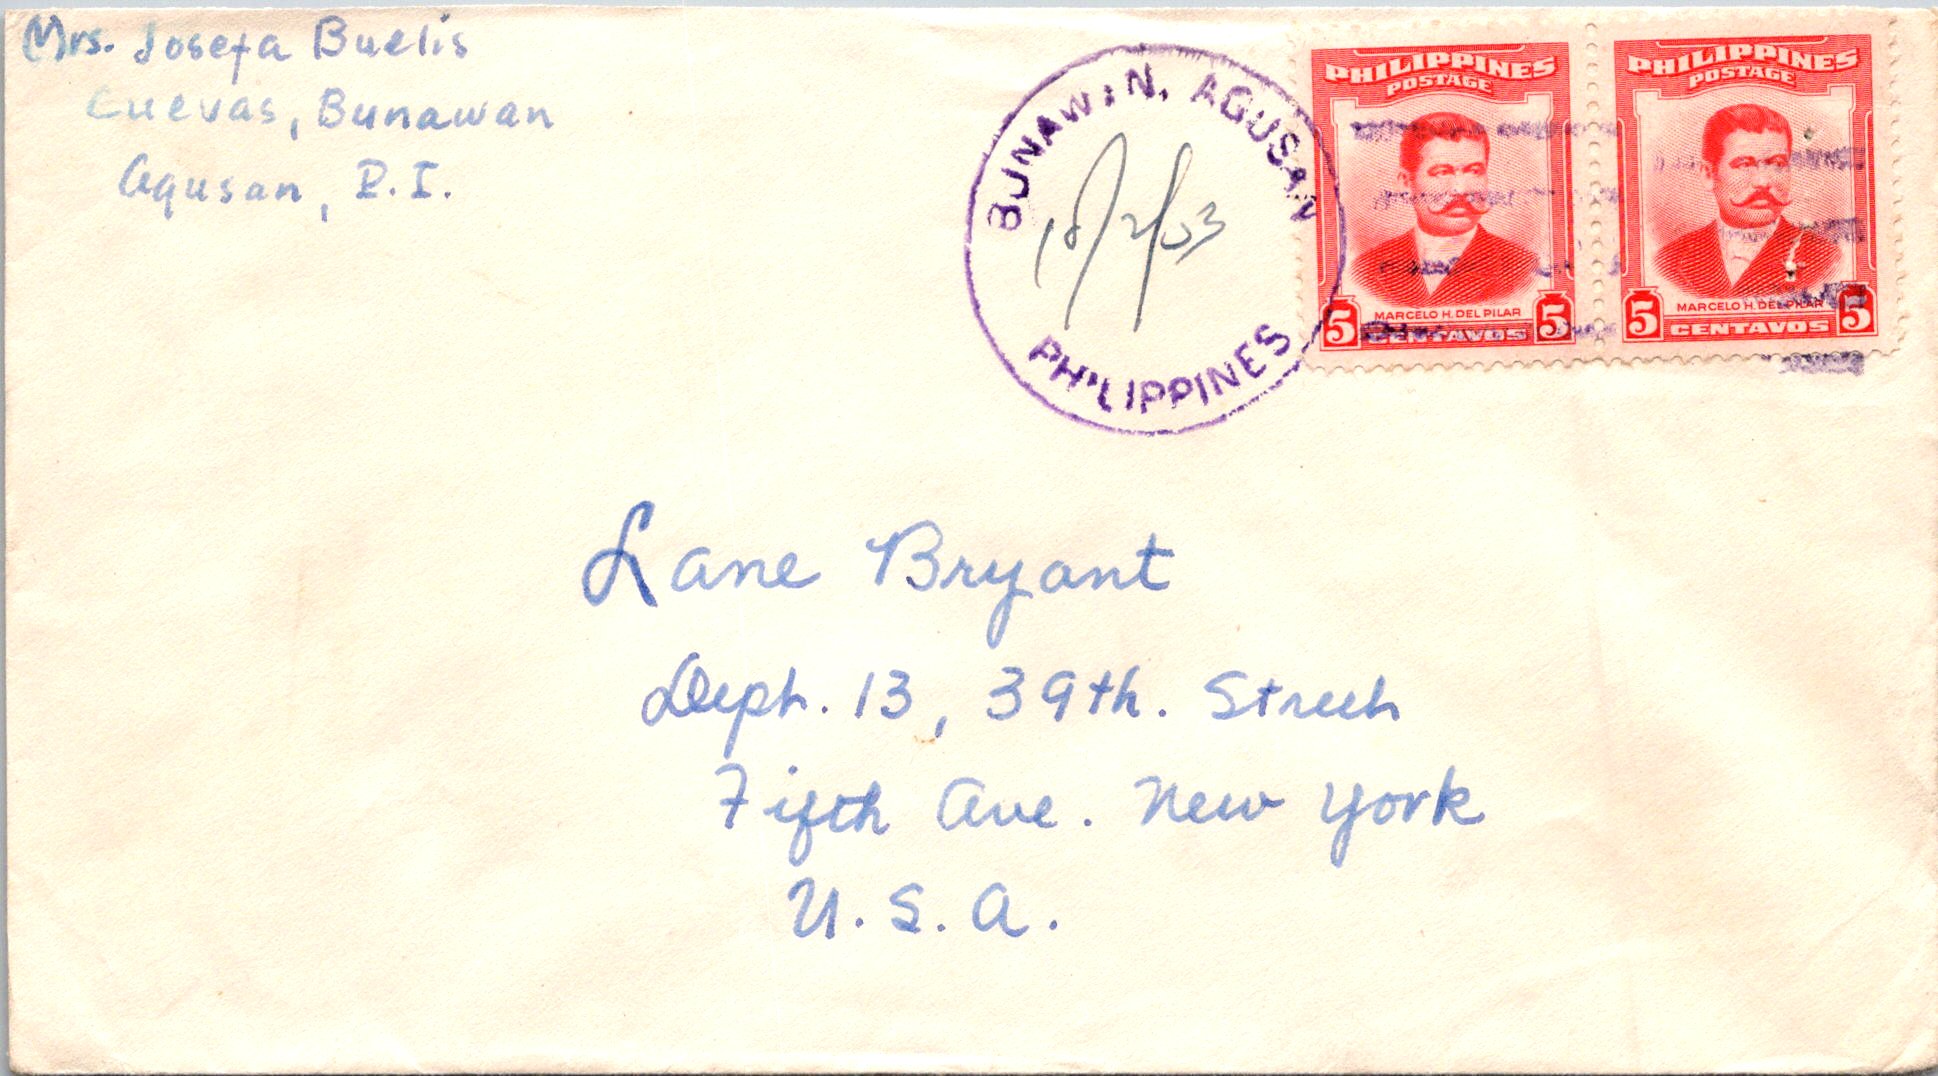 Mrs. Josefa Buelis
Cuevas, Bunawan
Agusan, P.I.
BUNAWAN, AGUSAN
PHILIPPINES
PHILIPPINES
POSTAGE
MARCELO H. DEL PILAR
5 CENTAVOS 5
PHILIPPINES
POSTAGE
MARCELO H. DEL PILAR
5 CENTAVOS 5
Lane Bryant
Dept. 13, 39th. Street
Fifth Ave. New York
U.S.A.